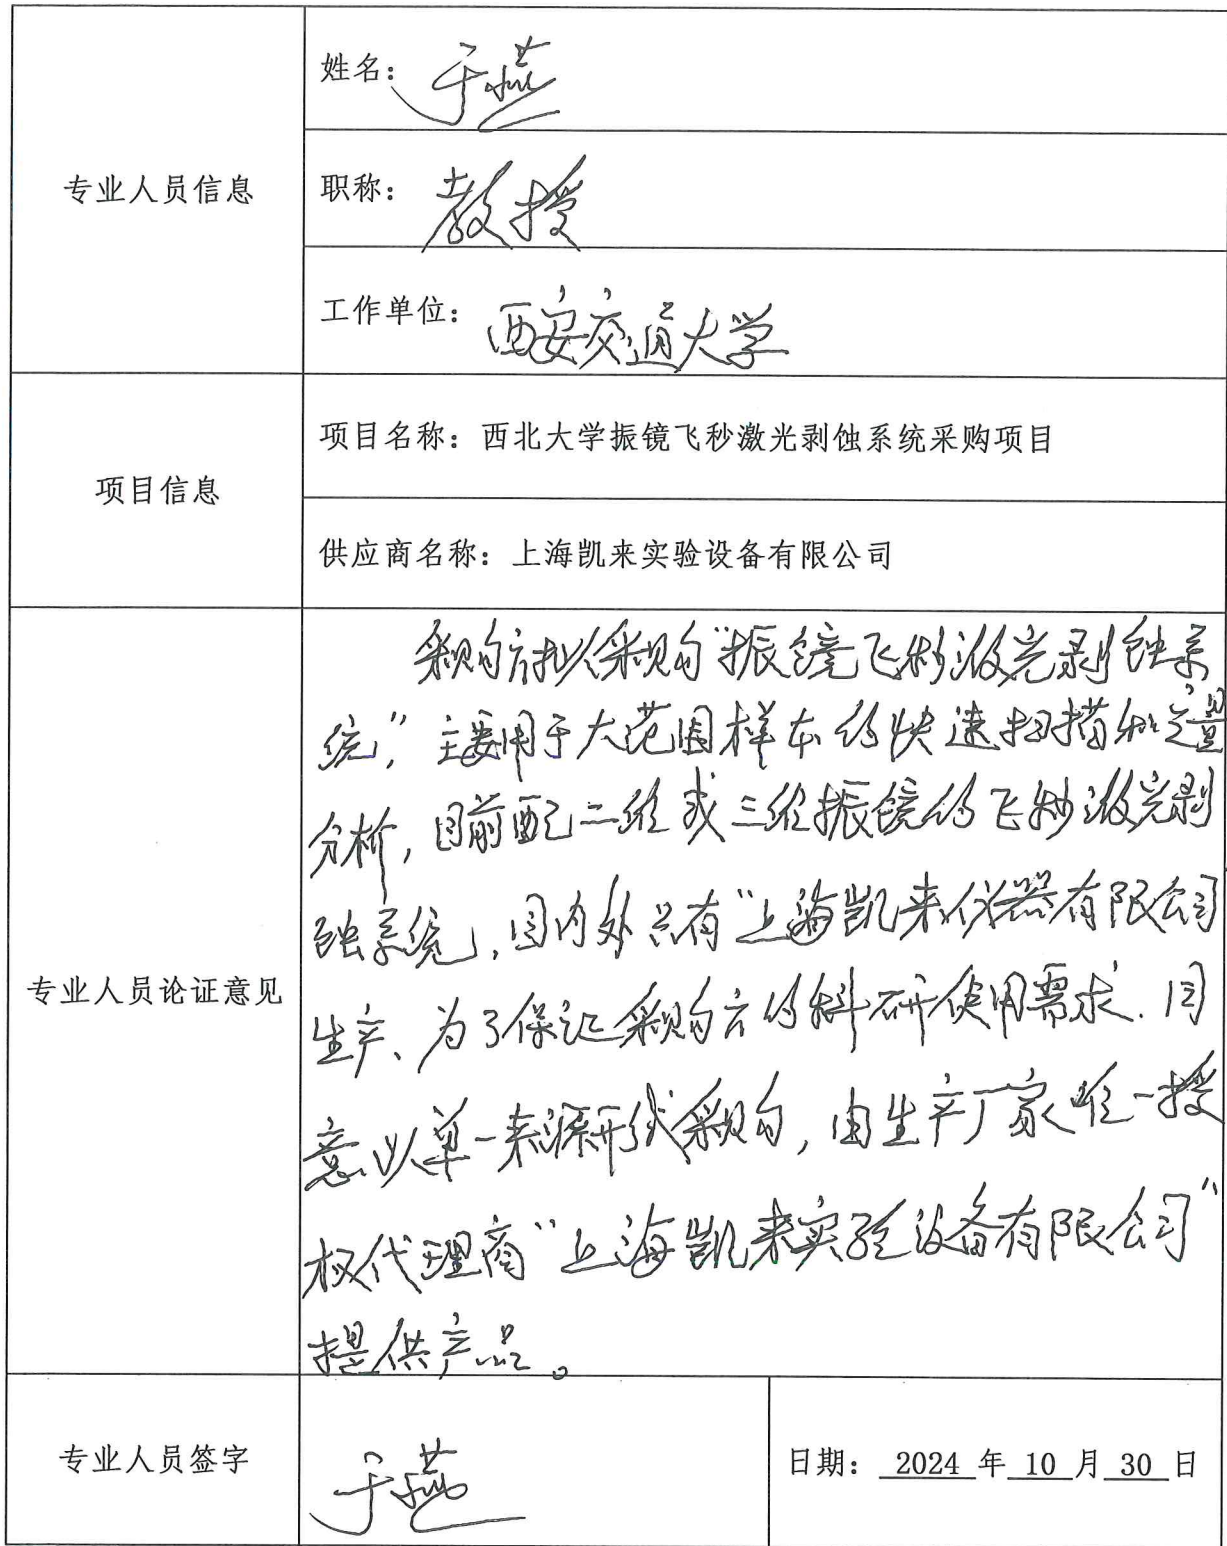 姓名：于燕
专业人员信息
职称：教授
工作单位：西安交通大学
项目信息
项目名称：西北大学振镜飞秒激光剥蚀系统采购项目
供应商名称：上海凯来实验设备有限公司
专业人员论证意见
采购方拟采购“振镜飞秒激光剥蚀系
统”，主要用于大范围样本的快速扫描和定量
分析，目前配二维或三维振镜的飞秒激光剥
蚀系统，国内外只有“上海凯来仪器有限公司
生产、为了保证采购方的科研使用需求．同
意以单一来源形式采购，由生产厂家唯一授
权代理商“上海凯来实验设备有限公司”
提供产品。
专业人员签字
于燕
日期：2024年10月30日